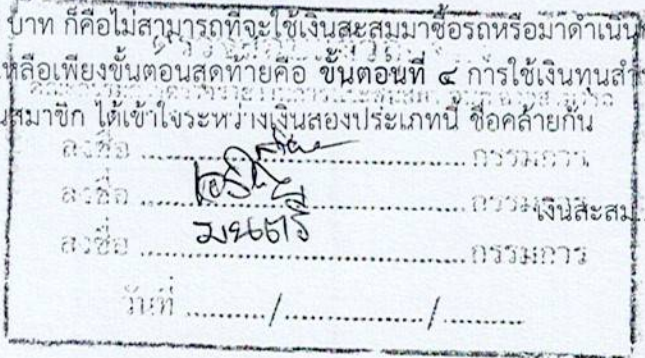 บาท ก็คือไม่สามารถที่จะใช้เงินสะสมมาซื้อรถหรือมาดำเนิน
เหลือเพียงขั้นตอนสุดท้ายคือ ขั้นตอนที่ ๔ การใช้เงินทุนสำ
สมาชิก ได้เข้าใจระหว่างเงินสองประเภทนี้ ชื่อคล้ายกัน
ลงชื่อ ........................ กรรมการ
ลงชื่อ ........................ กรรมการ
เงินสะสม..
มนตรี
ลงชื่อ ........................ กรรมการ
วันที่ ........../................/..........